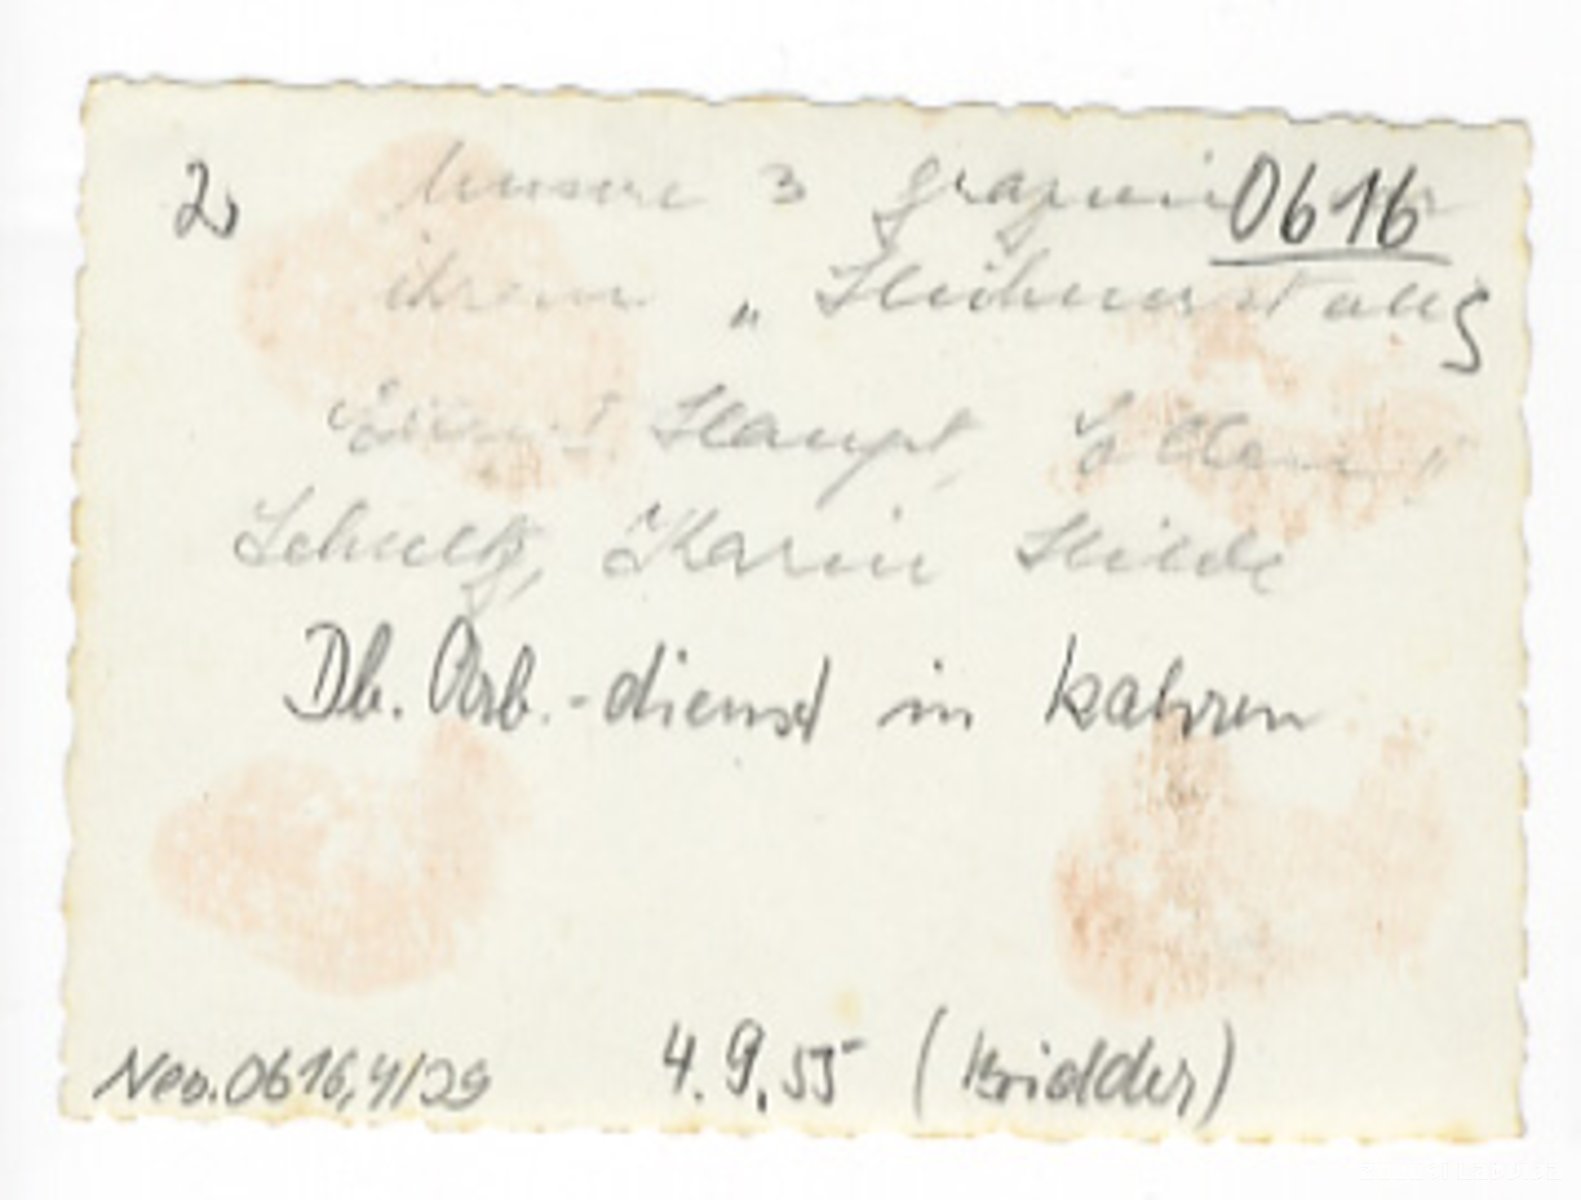 2 Unsere 3 0616
ihrem „ Hühnerstall
Haupt,
Schultz, Karin Hilde
Db. Arb.-dienst in Kahren
Neg. 0616, 4/29 4.9.55 (Kridder)